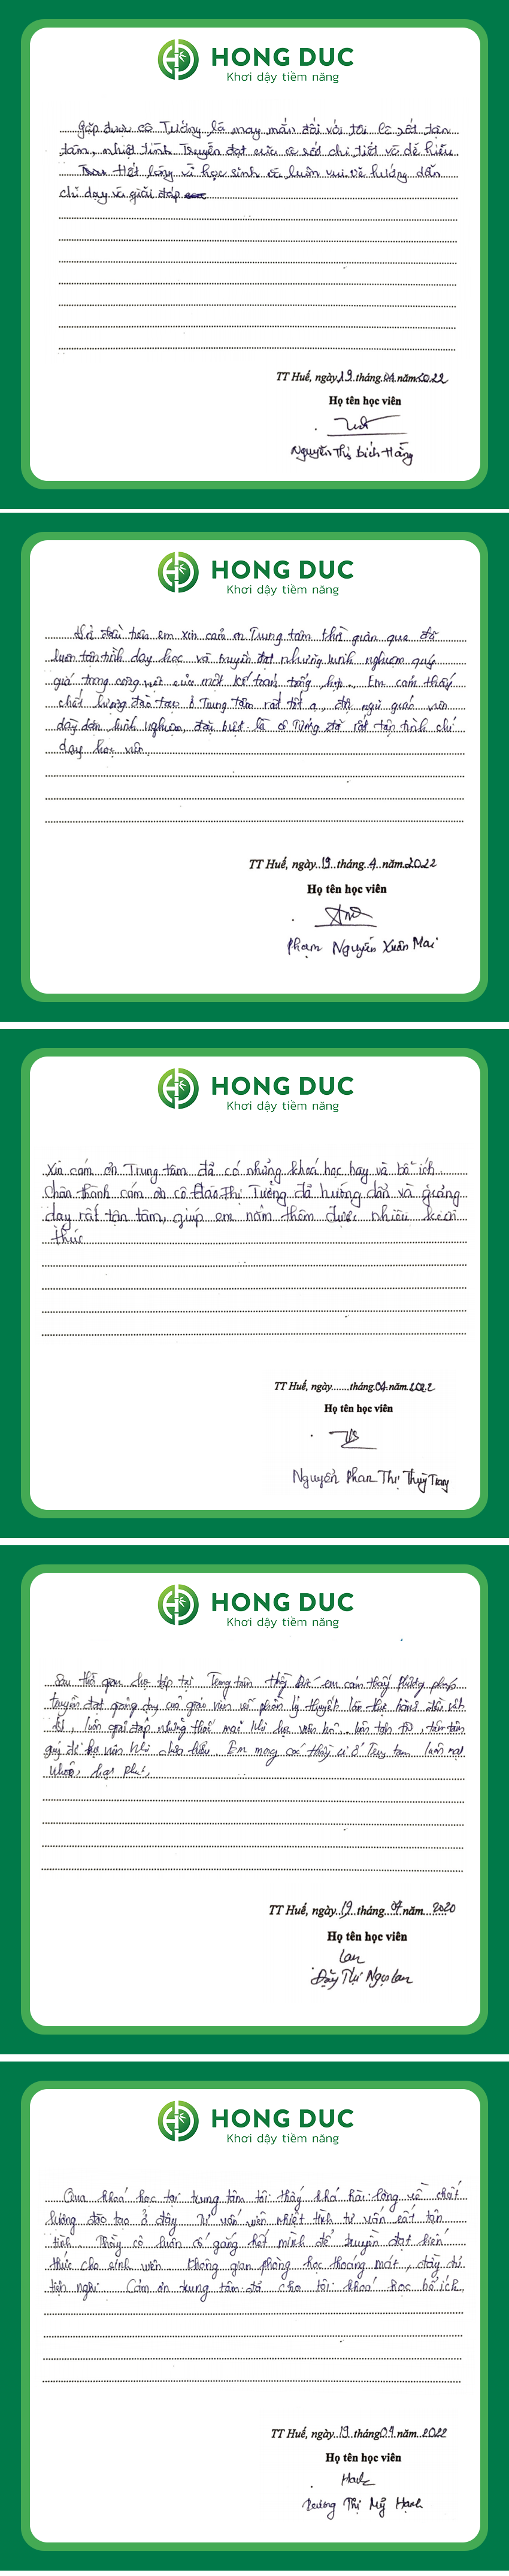 HONG DUC
Khơi dậy tiềm năng
Gặp được cô Tưởng là may mắn đối với tôi Cô rất tận
tâm, nhiệt tình Truyền đạt của cô rất chi tiết và dễ hiểu
Hết lòng vì học sinh cô luôn vui vẻ hướng dẫn
chỉ dạy và giải đáp
TT Huế, ngày 19 tháng 04 năm 2022
Họ tên học viên
Nguyễn Thị Bích Hằng
HONG DUC
Khơi dậy tiềm năng
đầu tiên em xin cảm ơn Trung tâm thời gian qua đã
luôn tận tình dạy học và truyền đạt những kinh nghiệm quý
giá trong công việc của một kế toán tổng hợp. Em cảm thấy
chất lượng đào tạo ở Trung tâm rất tốt ạ, đội ngũ giáo viên
dày dặn kinh nghiệm, đặc biệt là cô Tưởng đã rất tận tình chỉ
dạy học viên.
TT Huế, ngày 19 tháng 4 năm 2022
Họ tên học viên
Phạm Nguyễn Xuân Mai
HONG DUC
Khơi dậy tiềm năng
Xin cám ơn Trung tâm đã có những khoá học hay và bổ ích.
Chân thành cám ơn cô Đào Thị Tưởng đã hướng dẫn và giảng
dạy rất tận tâm, giúp em nắm thêm được nhiều kiến
thức
TT Huế, ngày.......tháng 04 năm 2022
Họ tên học viên
Nguyễn Phan Thị Thùy Trang
HONG DUC
Khơi dậy tiềm năng
Sau thời gian học tập tại Trung tâm thầy Đức em cảm thấy phương pháp
truyền đạt giảng dạy của giáo viên với phần lý thuyết lẫn thực hành đều rất
, luôn giải đáp những thắc mắc khi học viên hỏi. luôn tận tâm
khi chưa hiểu. Em mong các thầy cô ở Trung tâm luôn mạnh
khoẻ, hạnh phúc,
TT Huế, ngày 19 tháng 04 năm 2020
Họ tên học viên
Lan
Đặng Thị Ngọc Lan
HONG DUC
Khơi dậy tiềm năng
Qua khoá học tại trung tâm tôi thấy khá hài lòng về chất
lượng đào tạo ở đây. Tư vấn viên nhiệt tình tư vấn rất tận
tình. Thầy cô luôn cố gắng hết mình để truyền đạt kiến
thức cho sinh viên. Không gian phòng học thoáng mát, đầy đủ
tiện nghi. Cảm ơn trung tâm đã cho tôi khoá học bổ ích.
TT Huế, ngày 19 tháng 09 năm 2022
Họ tên học viên
Hạnh
Trương Thị Mỹ Hạnh